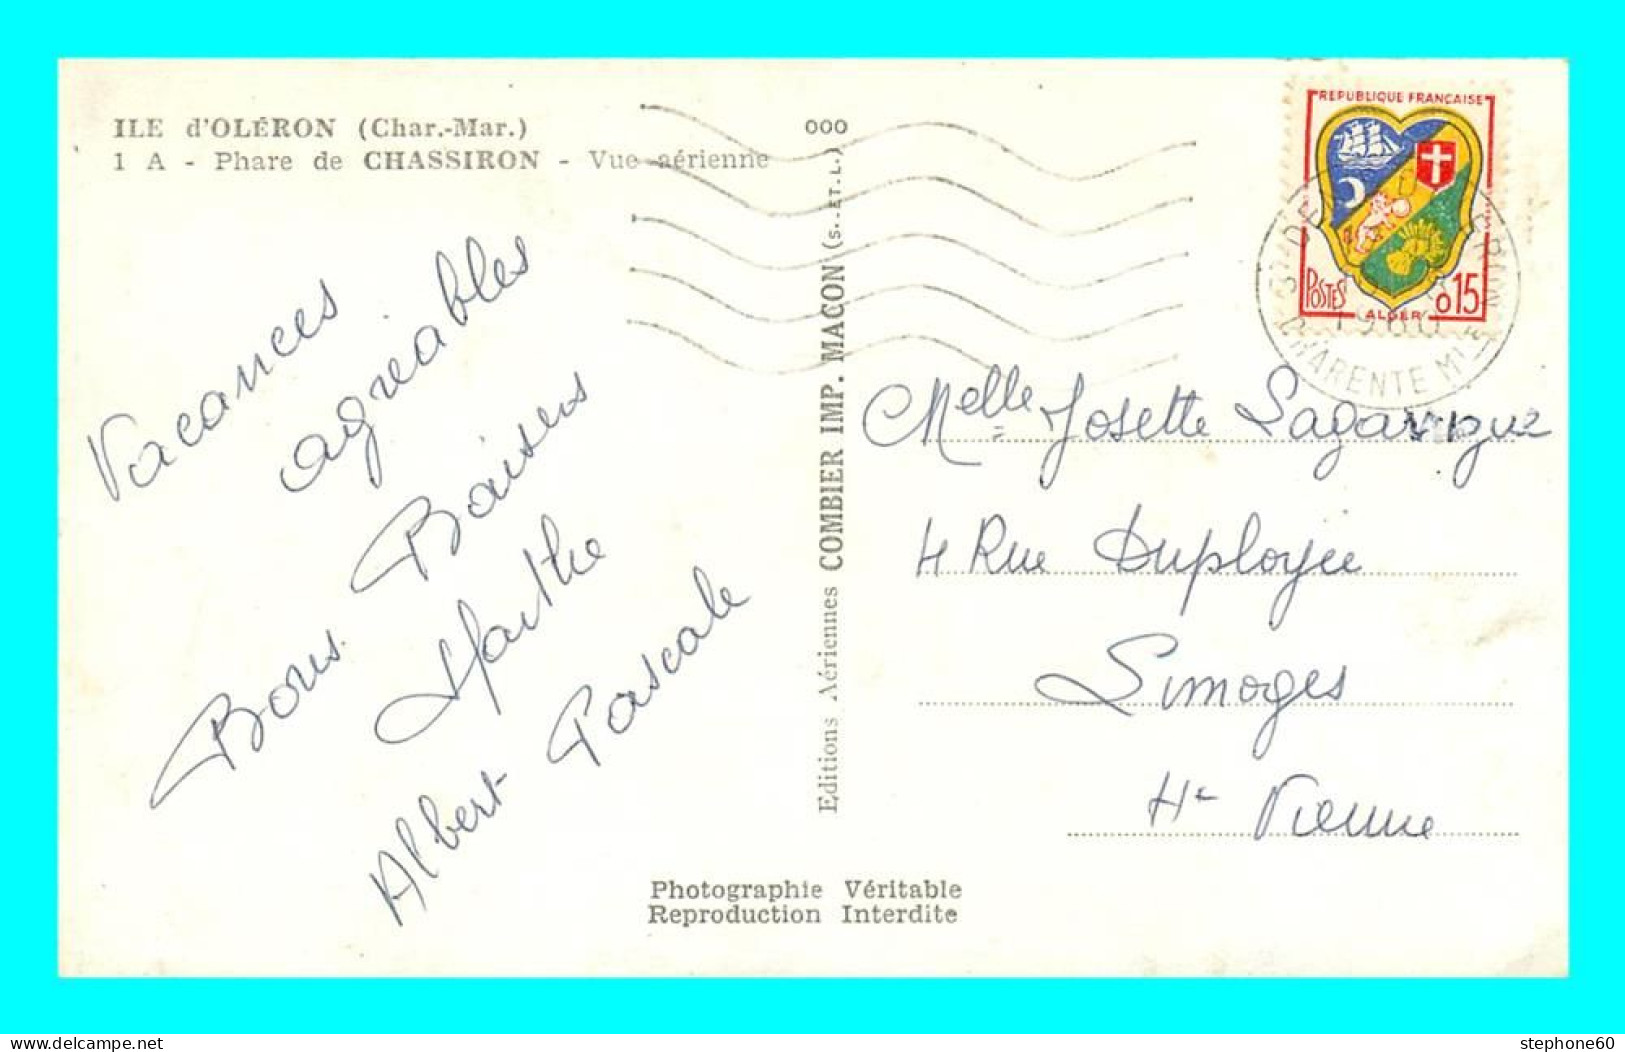 ILE d'OLÉRON (Char.-Mar.)
1 A - Phare de CHASSIRON - Vue aérienne
000
REPUBLIQUE FRANÇAISE
POSTES
ALGER
0,15
1960
CHARENTE MME
Vacances
agréables
Bons Baisers
Marthe
Albert Pascale
Editions Aériennes COMBIER IMP. MACON (S.-ET-L.)
Melle Josette
4 Rue Duployée
Limoges
Hte Vienne
Photographie Véritable
Reproduction Interdite
delcampe.net
stephone60